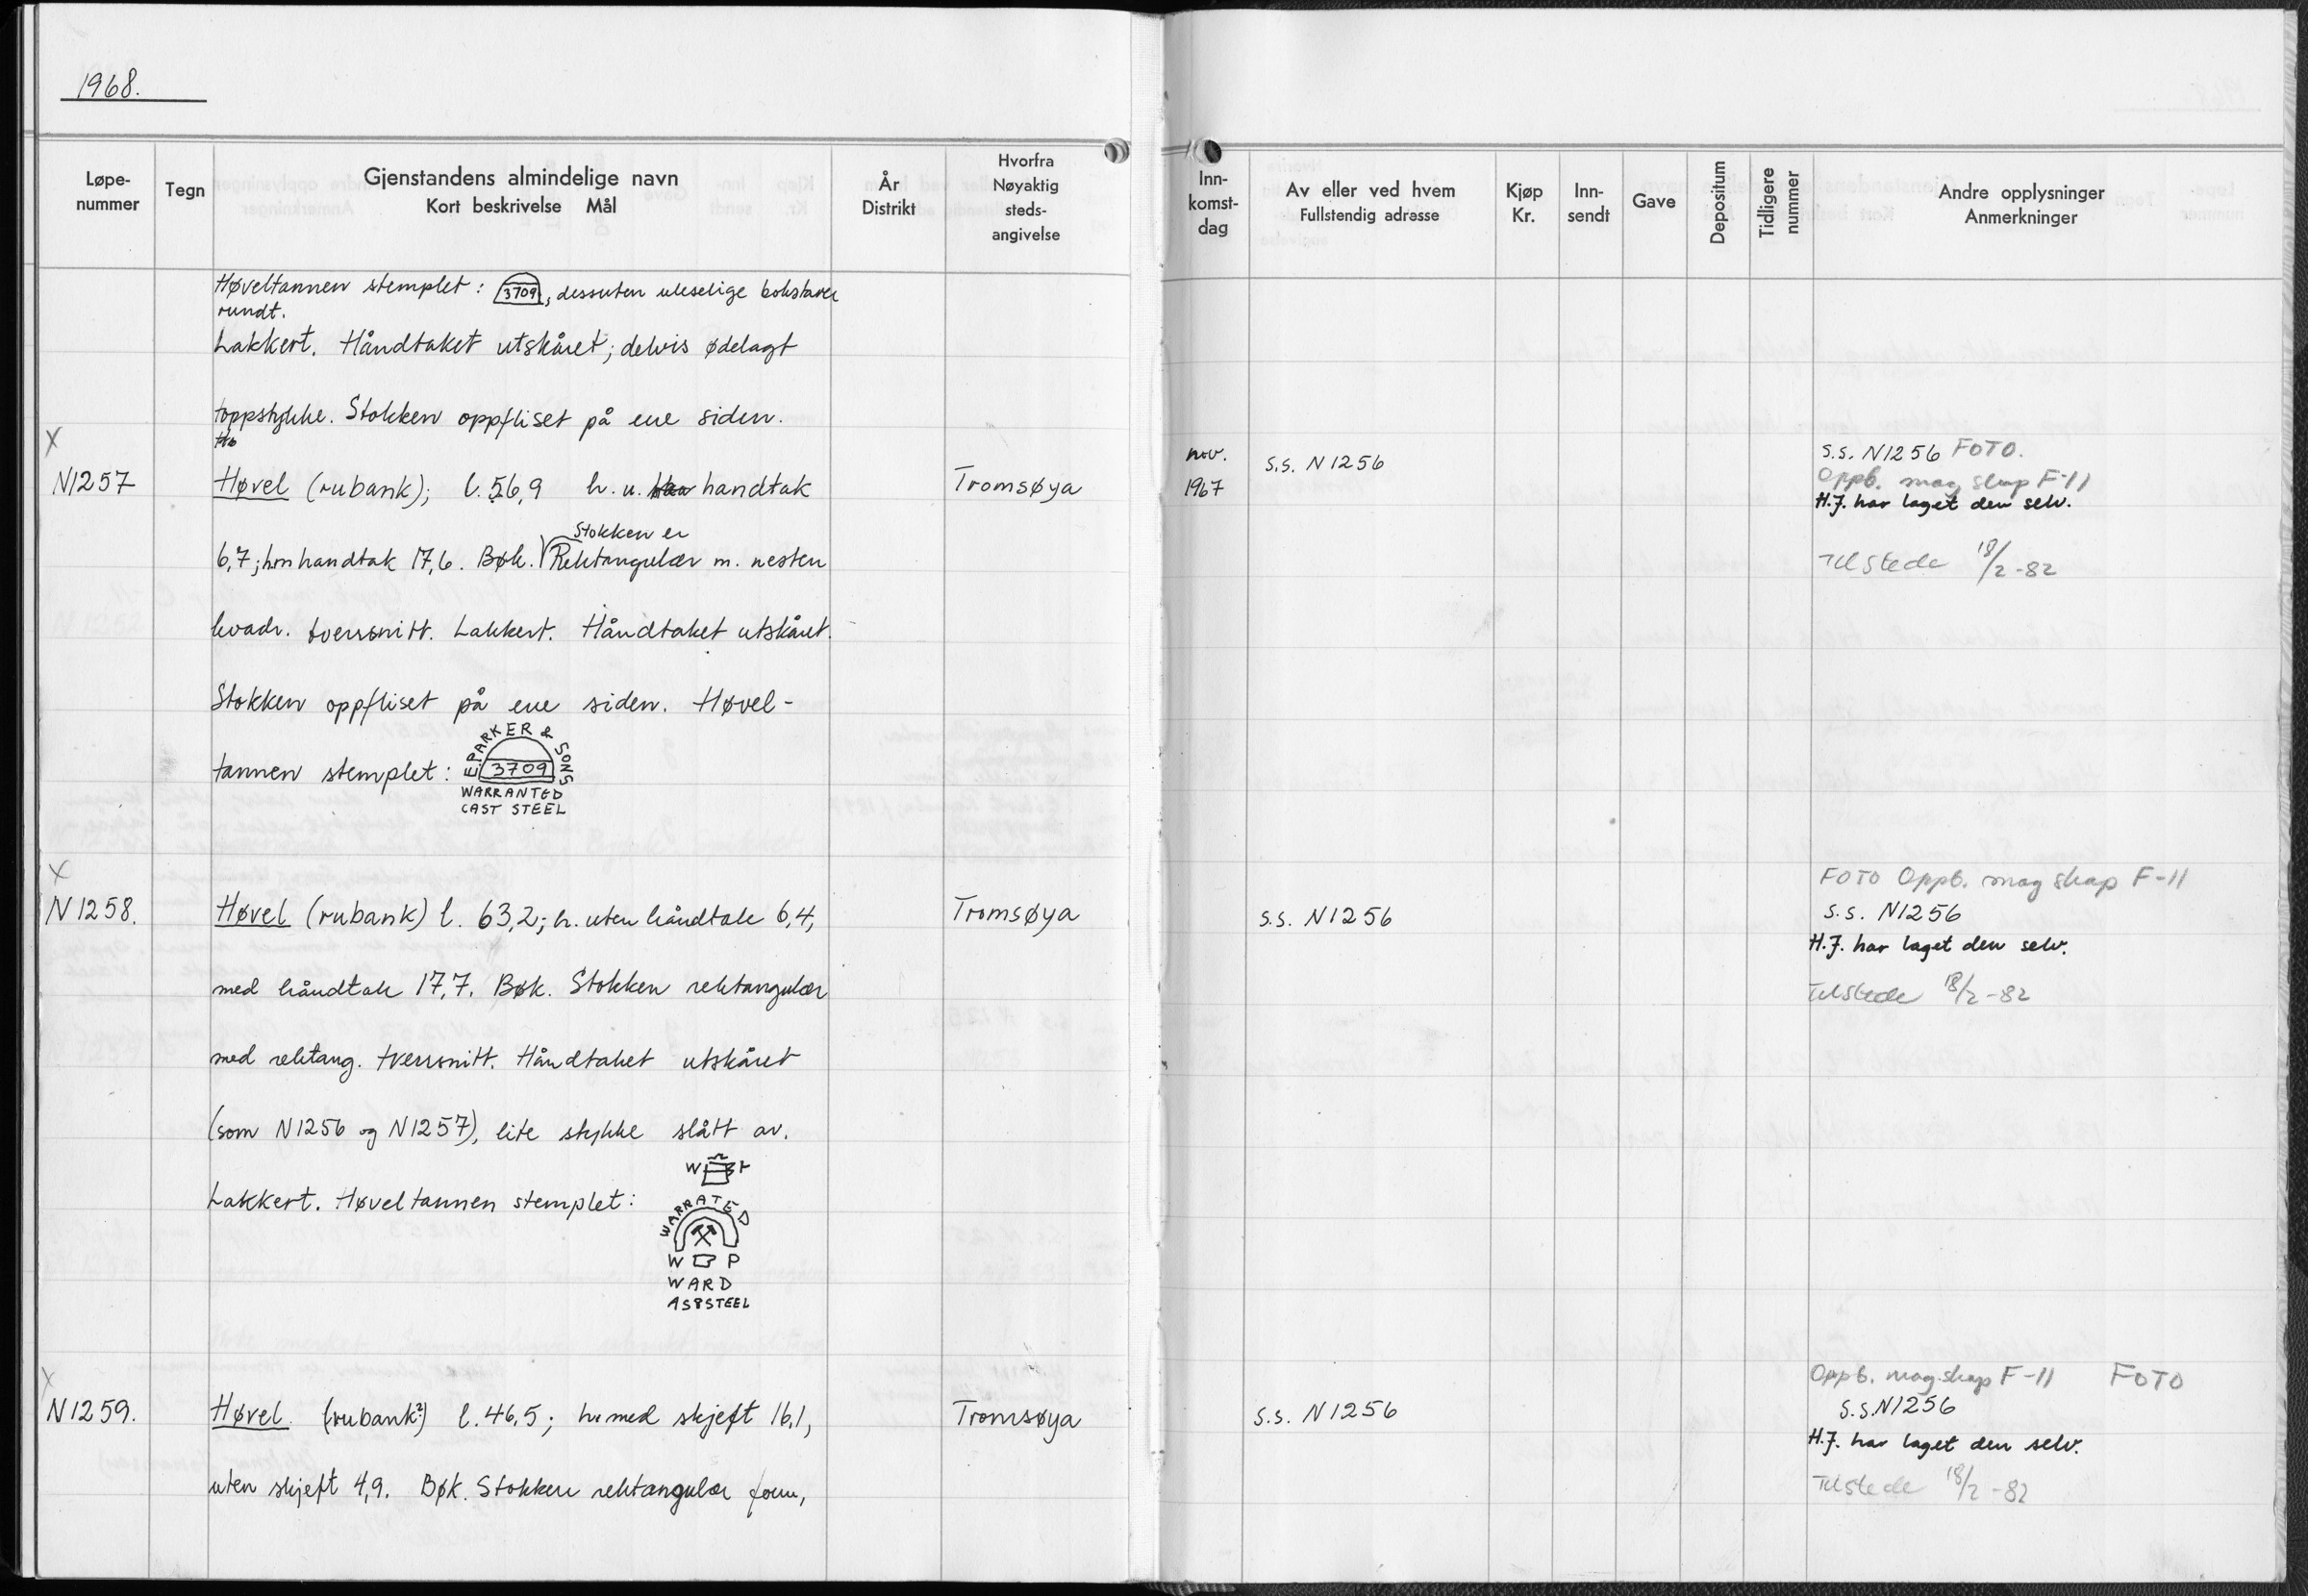 1968.
Løpe-
nummer
Tegn
Gjenstandens almindelige navn
Kort beskrivelse Mål
År
Distrikt
Hvorfra
Nøyaktig
steds-
angivelse
Høveltannen stemplet: 3709, dessuten uleselige bokstaver
rundt.
Lakkert. Håndtaket utskåret; delvis ødelagt
toppstykke. Stokken oppfliset på ene siden.
X
N1257
Høvel (rubank); l. 56,9 h. u. handtak
Tromsøya
Stokken er
6,7; h.m handtak 17,6. Bøk. Rektangulær m. nesten
kvadr. tverrsnitt. Lakkert. Håndtaket utskåret.
Stokken oppfliset på ene siden. Høvel-
tannen stemplet:
E. PARKER & SONS
3709
WARRANTED
CAST STEEL
X
N1258.
Høvel (rubank) l. 63,2; h. uten håndtak 6,4,
Tromsøya
med håndtak 17,7. Bøk. Stokken rektangulær
med rektang. tverrsnitt. Håndtaket utskåret
(som N1256 og N1257), lite stykke slått av.
Lakkert. Høveltannen stemplet:
W
WARRATED
W P
WARD
AS8STEEL
X
N1259.
Høvel (rubank?) l. 46,5; h. med skjeft 16,1,
Tromsøya
uten skjeft 4,9. Bøk. Stokken rektangulær form,
Inn-
komst-
dag
Av eller ved hvem
Fullstendig adresse
Kjøp
Kr.
Inn-
sendt
Gave
Depositum
Tidligere
nummer
Andre opplysninger
Anmerkninger
nov.
1967
s.s. N1256
s.s. N1256 FOTO.
Oppb. mag skap F-11
H.J. har laget den selv.
Tilstede 18/2-82
FOTO Oppb. mag skap F-11
s.s. N1256
s.s. N1256
H.J. har laget den selv.
Tilstede 18/2-82
Oppb. mag.skap F-11 FOTO
s.s. N1256
s.s. N1256
H.J. har laget den selv.
Tilstede 18/2-82